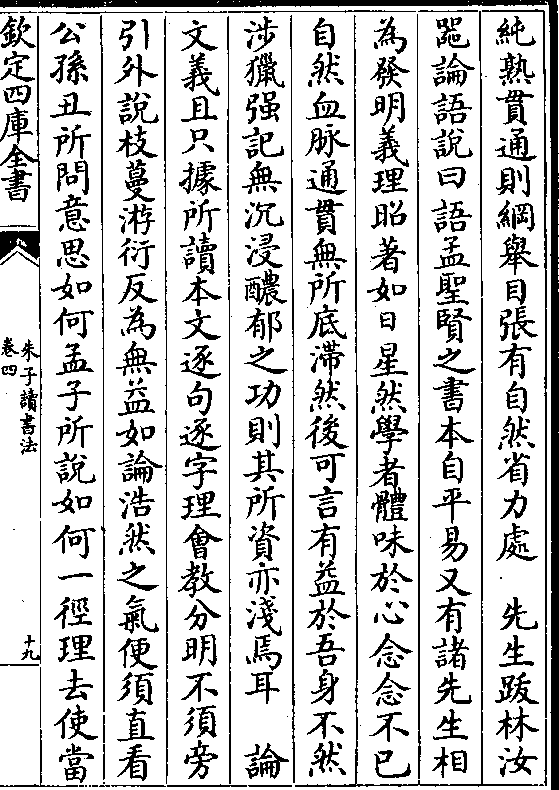 純熟貫通則綱舉目張有自然省力處　先生跋林汝
噐論語說曰語孟聖賢之書本自平易又有諸先生相
為發明義理昭著如日星然學者體味於心念念不已
自然血脉通貫無所底滯然後可言有益於吾身不然
涉獵强記無沉浸醲郁之功則其所資亦淺焉耳　論
文義且只據所讀本文逐句逐字理會教分明不須旁
引外說枝蔓游衍反為無益如論浩然之氣便須直看
公孫丑所問意思如何孟子所說如何一徑理去使當
欽定四庫全書
朱子讀書法
卷四
十九